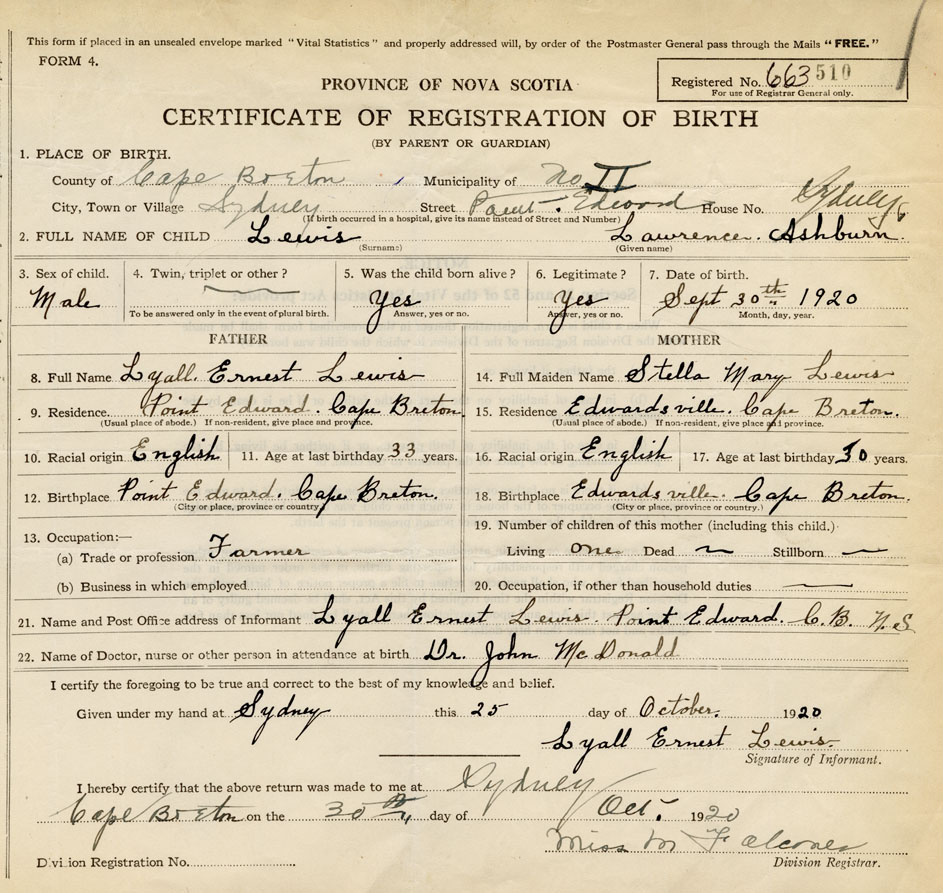 This form if placed in an unsealed envelope marked "Vital Statistics" and properly addressed will, by order of the Postmaster General pass through the Mails "FREE."
FORM 4.
PROVINCE OF NOVA SCOTIA
Registered No. 663 510
For use of Registrar General only.
CERTIFICATE OF REGISTRATION OF BIRTH
(BY PARENT OR GUARDIAN)
1. PLACE OF BIRTH.
County of Cape Breton Municipality of No II
City, Town or Village Sydney Street Point Edward House No. Sydney
(If birth occurred in a hospital, give its name instead of Street and Number)
2. FULL NAME OF CHILD Lewis Lawrence. Ashburn.
(Surname) (Given name)
3. Sex of child. 4. Twin, triplet or other? 5. Was the child born alive? 6. Legitimate? 7. Date of birth.
Male Yes Yes Sept 30th 1920
To be answered only in the event of plural birth. Answer, yes or no. Answer, yes or no. Month, day, year.
FATHER MOTHER
8. Full Name Lyall. Ernest Lewis 14. Full Maiden Name Stella Mary Lewis
9. Residence. Point Edward. Cape Breton. 15. Residence Edwardsville. Cape Breton.
(Usual place of abode.) If non-resident, give place and province. (Usual place of abode.) If non-resident, give place and province.
10. Racial origin English 11. Age at last birthday 33 years. 16. Racial origin English 17. Age at last birthday 30 years.
12. Birthplace Point Edward. Cape Breton. 18. Birthplace Edwardsville. Cape Breton.
(City or place, province or country.) (City or place, province or country.)
13. Occupation:— 19. Number of children of this mother (including this child.)
(a) Trade or profession Farmer Living one Dead — Stillborn —
(b) Business in which employed 20. Occupation, if other than household duties —
21. Name and Post Office address of Informant Lyall Ernest Lewis. Point Edward. C.B. N.S
22. Name of Doctor, nurse or other person in attendance at birth Dr. John McDonald
I certify the foregoing to be true and correct to the best of my knowledge and belief.
Given under my hand at Sydney this 25 day of October. 1920
Lyall Ernest Lewis.
Signature of Informant.
I hereby certify that the above return was made to me at Sydney
Cape Breton on the 30th day of Oct. 1920
Miss M
Division Registrar.
Division Registration No.